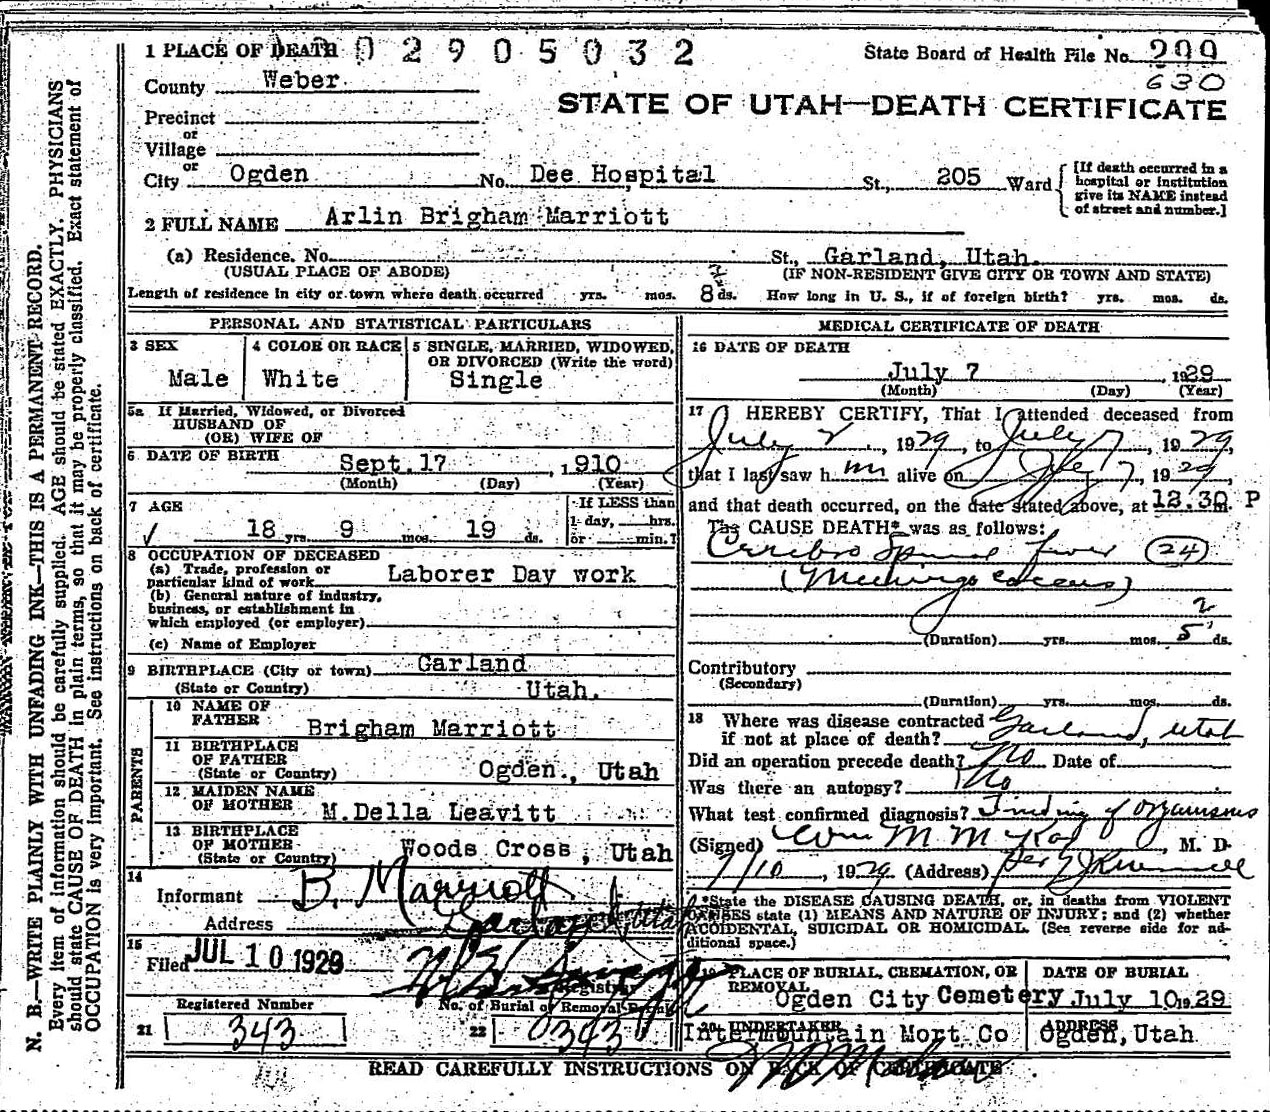 1 PLACE OF DEATH 02905032 State Board of Health File No. 299
630
County Weber
STATE OF UTAH—DEATH CERTIFICATE
Precinct
or
Village
or
City Ogden No. Dee Hospital St., 205 Ward
[If death occurred in a hospital or institution give its NAME instead of street and number.]
2 FULL NAME Arlin Brigham Marriott
(a) Residence. No. St., Garland, Utah.
(USUAL PLACE OF ABODE) (IF NON-RESIDENT GIVE CITY OR TOWN AND STATE)
Length of residence in city or town where death occurred yrs. mos. 8 ds. How long in U. S., if of foreign birth? yrs. mos. ds.
PERSONAL AND STATISTICAL PARTICULARS
3 SEX
Male
4 COLOR OR RACE
White
5 SINGLE, MARRIED, WIDOWED,
OR DIVORCED (Write the word)
Single
5a If Married, Widowed, or Divorced
HUSBAND OF
(OR) WIFE OF
6 DATE OF BIRTH Sept. 17, 1910
(Month) (Day) (Year)
7 AGE
18 yrs. 9 mos. 19 ds.
If LESS than
1 day, hrs.
or min.?
8 OCCUPATION OF DECEASED
(a) Trade, profession or
particular kind of work Laborer Day work
(b) General nature of industry,
business, or establishment in
which employed (or employer)
(c) Name of Employer
9 BIRTHPLACE (City or town) Garland
(State or Country) Utah.
PARENTS
10 NAME OF
FATHER
Brigham Marriott
11 BIRTHPLACE
OF FATHER
(State or Country) Ogden., Utah
12 MAIDEN NAME
OF MOTHER M.Della Leavitt
13 BIRTHPLACE
OF MOTHER
(State or Country) Woods Cross, Utah
14
Informant B. Marriott
Address Garland, Utah
15
Filed JUL 10 1929
Registrar
Registered Number
21 343
No. of Burial or Removal Permit
22 0343
MEDICAL CERTIFICATE OF DEATH
16 DATE OF DEATH
July 7, 1929
(Month) (Day) (Year)
17 I HEREBY CERTIFY, That I attended deceased from
July 2, 1929, to July 7, 1929,
that I last saw him alive on July 7, 1929
and that death occurred, on the date stated above, at 12.30 m. P
The CAUSE DEATH* was as follows:
Cerebro Spinal fever (24)
(Meningococcus)
2
(Duration) yrs. mos. 5 ds.
Contributory
(Secondary)
(Duration) yrs. mos. ds.
18 Where was disease contracted
if not at place of death? Garland, Utah
Did an operation precede death? No Date of
Was there an autopsy? No
What test confirmed diagnosis? Finding of organisms
(Signed) Wm M McKay M. D.
7/10, 1929 (Address) per
*State the DISEASE CAUSING DEATH, or, in deaths from VIOLENT
CAUSES state (1) MEANS AND NATURE OF INJURY; and (2) whether
ACCIDENTAL, SUICIDAL OR HOMICIDAL. (See reverse side for additional space.)
19 PLACE OF BURIAL, CREMATION, OR
REMOVAL
Ogden City Cemetery
DATE OF BURIAL
July 10, 1929
20 UNDERTAKER
Intermountain Mort Co
ADDRESS
Ogden, Utah
READ CAREFULLY INSTRUCTIONS ON BACK OF CERTIFICATE
N. B.—WRITE PLAINLY WITH UNFADING INK—THIS IS A PERMANENT RECORD.
Every item of information should be carefully supplied. AGE should be stated EXACTLY. PHYSICIANS
should state CAUSE OF DEATH in plain terms, so that it may be properly classified. Exact statement of
OCCUPATION is very important. See instructions on back of certificate.